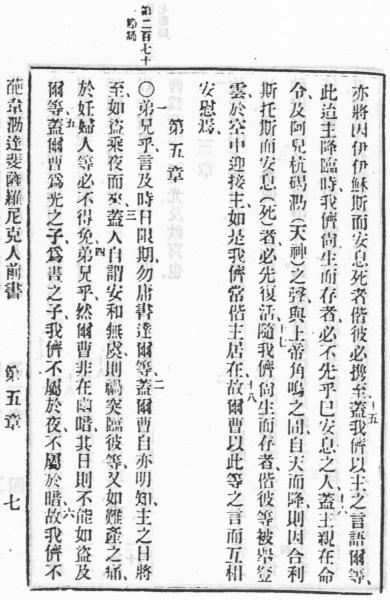 亦將因伊伊穌斯而安息死者偕彼必携至蓋我儕以主之言語爾等、十五
此迨主降臨時我儕尙生而存者必不先乎已安息之人蓋主親在命十六
令及阿兒杭碣泐(天神)之聲與上帝角嗚之間自天而降則因合利
斯托斯而安息(死)者必先復活隨我儕尙生而存者偕彼等被舉登十七
雲於空中迎接主如是我儕常偕主居在故爾曹以此等之言而互相十八
安慰焉、
第五章
第二百七十
節誦
○一弟兄乎言及時日限期勿庸書達爾等、二蓋爾曹自亦明知主之日將
至如盜乘夜而至、三蓋人自謂安和無虞則禍突臨彼等又如難產之痛、
於妊婦人等必不得免、四弟兄乎然爾曹非在幽暗其日則不能如盜及
爾等、五蓋爾曹爲光之子爲晝之子我儕不屬於夜不屬於暗、六故我儕不
葩韋泐達斐薩羅尼克人前書 第五章 七